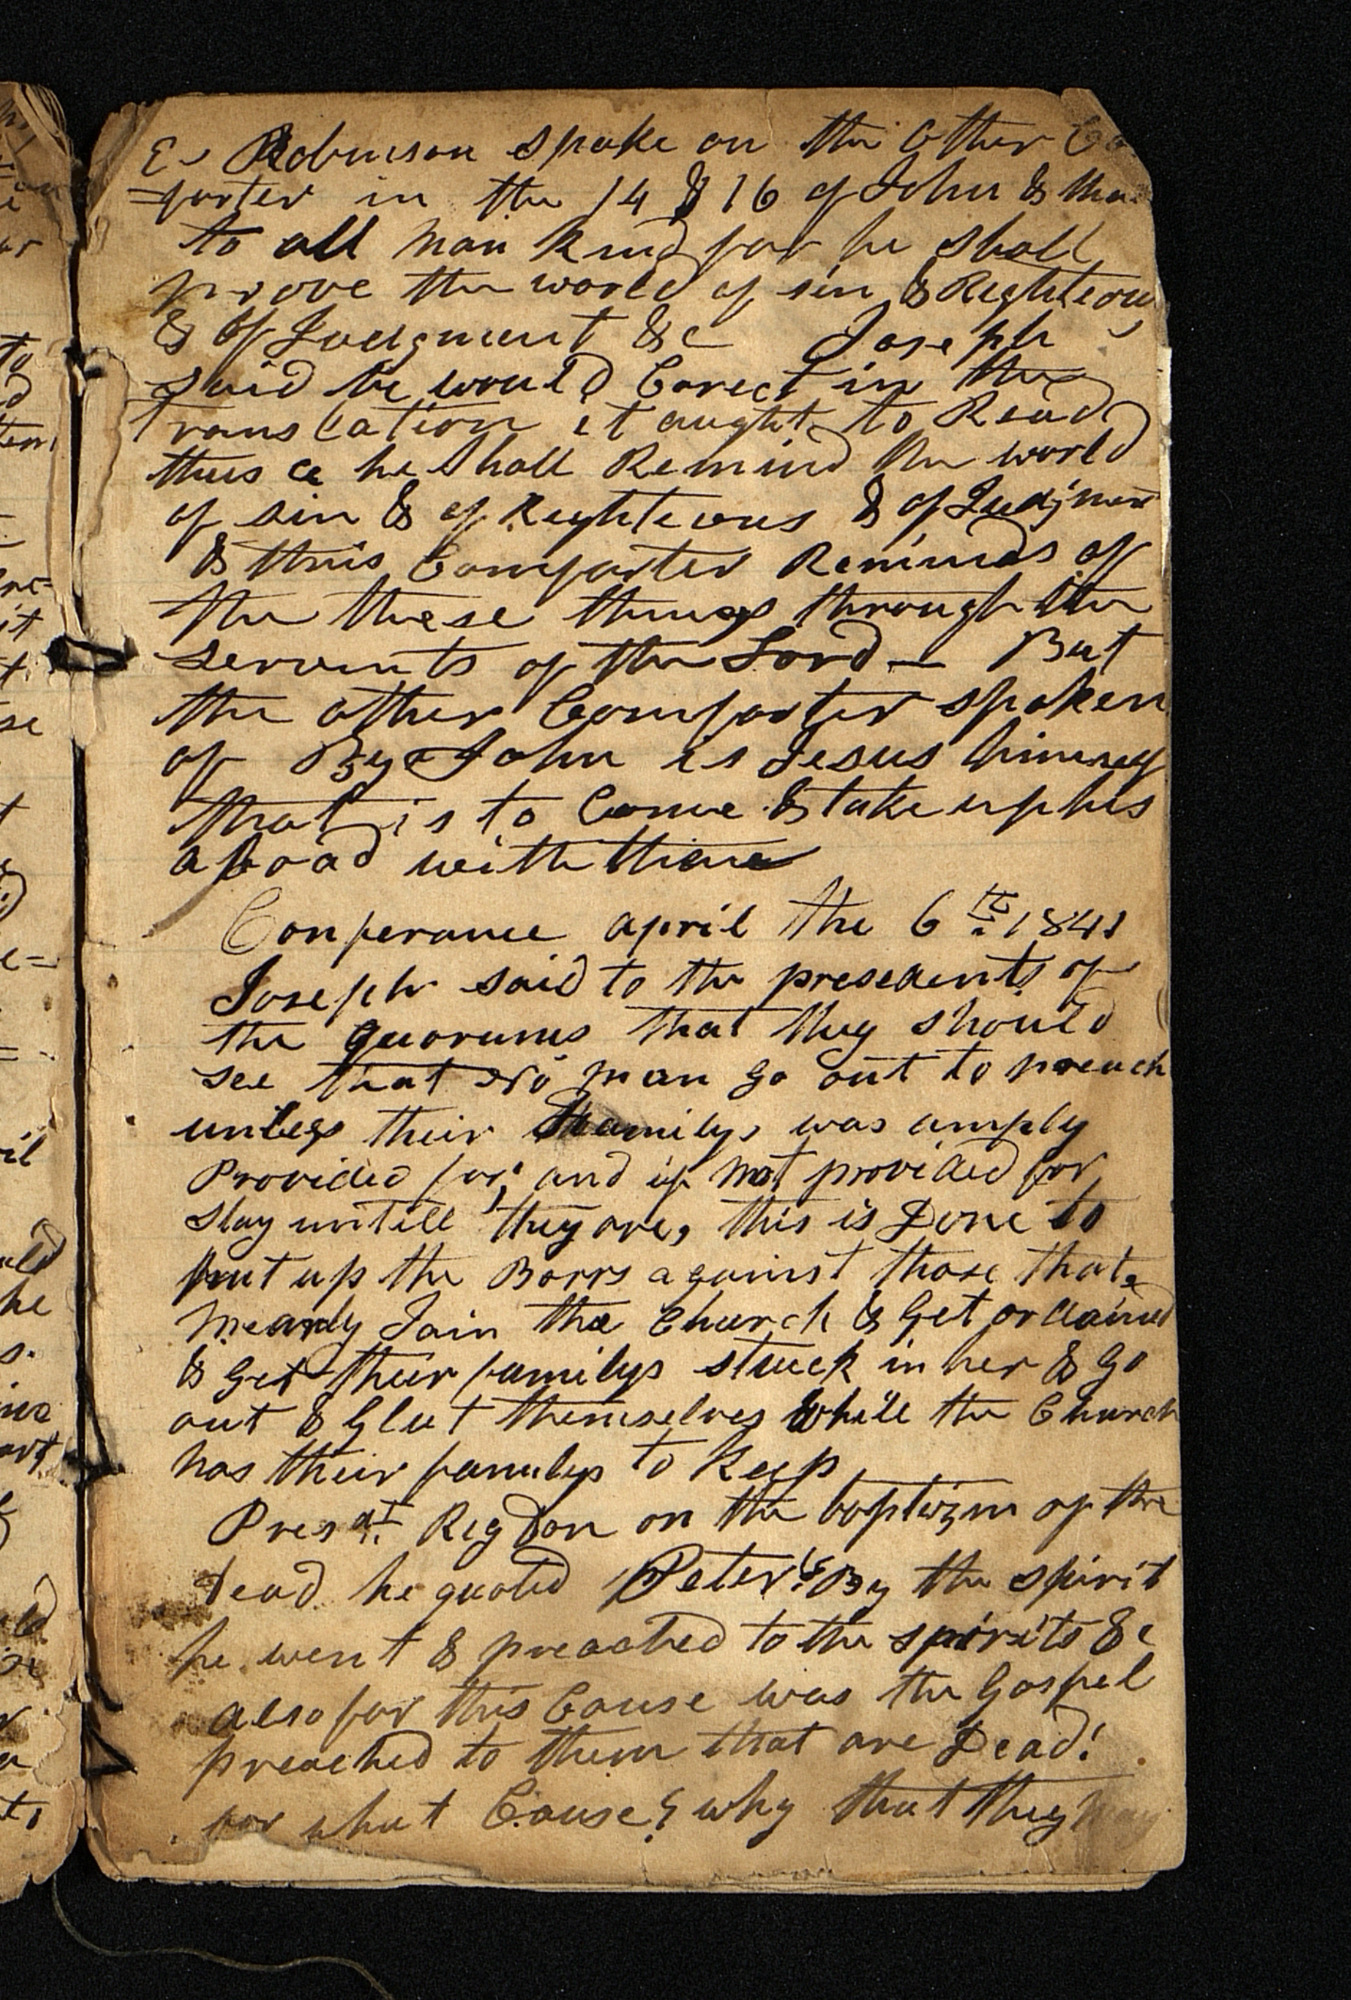 E. Robinson spoke on the other Co
=forter in the 14 & 16 of John & tha
to all man kind for he shall
prove the world of sin & Righteous
& of Judgment &c Joseph
said he would Corect in the
translation it aught to Read
thus he shall Remind the world
of sin & of Righteous & of Judgment
& this Comforter Reminds of
the these things through the
servents of the Lord — But
the other Comforter spoken
of By John is Jesus himself
that is to Come & take up his
aboad with them
Conferance april the 6th 1841
Joseph said to the presedents of
the quorums that they should
see that no man go out to preach
unless their familys was amply
Provided for; and if not provided for
stay untill they are, this is Done to
put up the Barrs against those that
mearly Join the Church & Get ordained
& Get their familys stuck in her & Go
out & Glut themselves while the Church
has their familys to Keep
Presdt Rigdon on the baptizm of the
dead he quoted Peter By the spirit
he went & preached to the spirits &c
also for this Cause was the Gospel
preached to them that are Dead!
for what Cause? why that they may